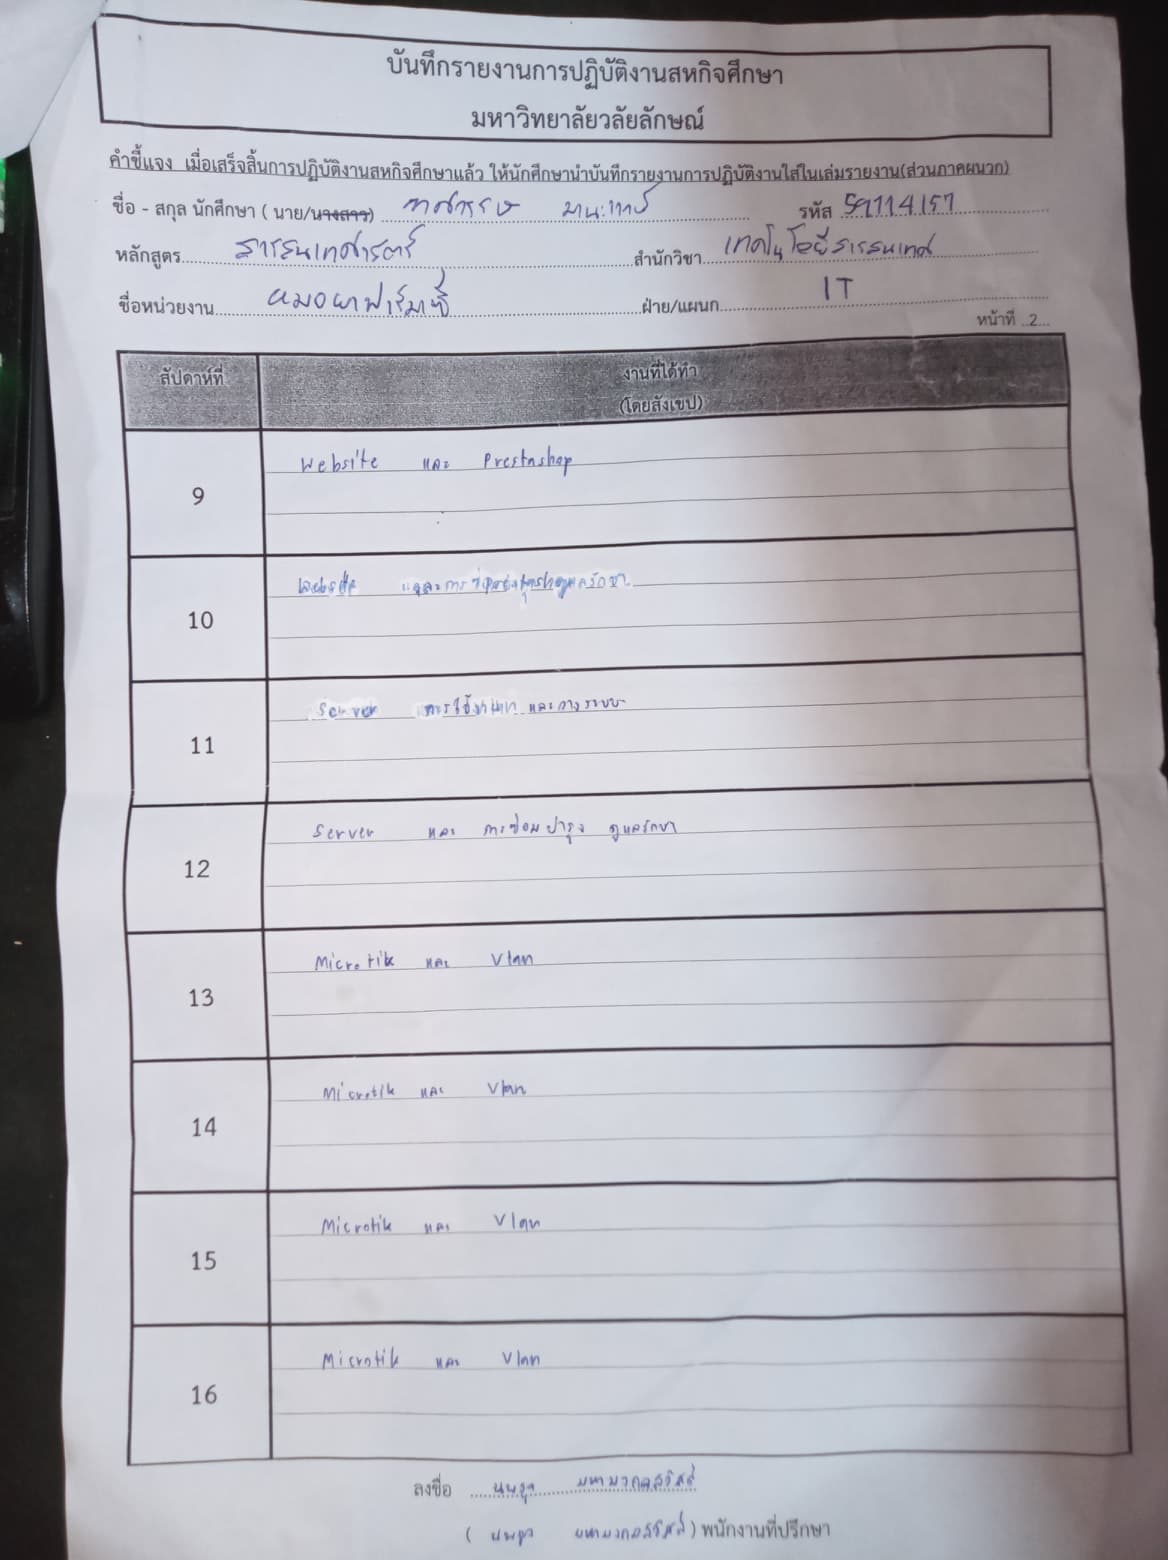 บันทึกรายงานการปฏิบัติงานสหกิจศึกษา
มหาวิทยาลัยวลัยลักษณ์
คำชี้แจง เมื่อเสร็จสิ้นการปฏิบัติงานสหกิจศึกษาแล้ว ให้นักศึกษานำบันทึกรายงานการปฏิบัติงานใส่ในเล่มรายงาน(ส่วนภาคผนวก)
ชื่อ - สกุล นักศึกษา ( นาย/นางสาว) รหัส 59114157
หลักสูตร สารสนเทศศาสตร์ สำนักวิชา เทคโนโลยีสารสนเทศ
ชื่อหน่วยงาน หมอยาฟาร์มาซี ฝ่าย/แผนก IT
หน้าที่ ..2...
สัปดาห์ที่ งานที่ได้ทำ
(โดยสังเขป)
9 Website และ Prestashop
10 Website และการซ่อมบำรุงดูแลรักษา
11 Server และวางระบบ
12 Server และ การซ่อมบำรุง ดูแลรักษา
13 Microtik และ Vlan
14 Microtik และ Vlan
15 Microtik และ Vlan
16 Microtik และ Vlan
ลงชื่อ
พนักงานที่ปรึกษา